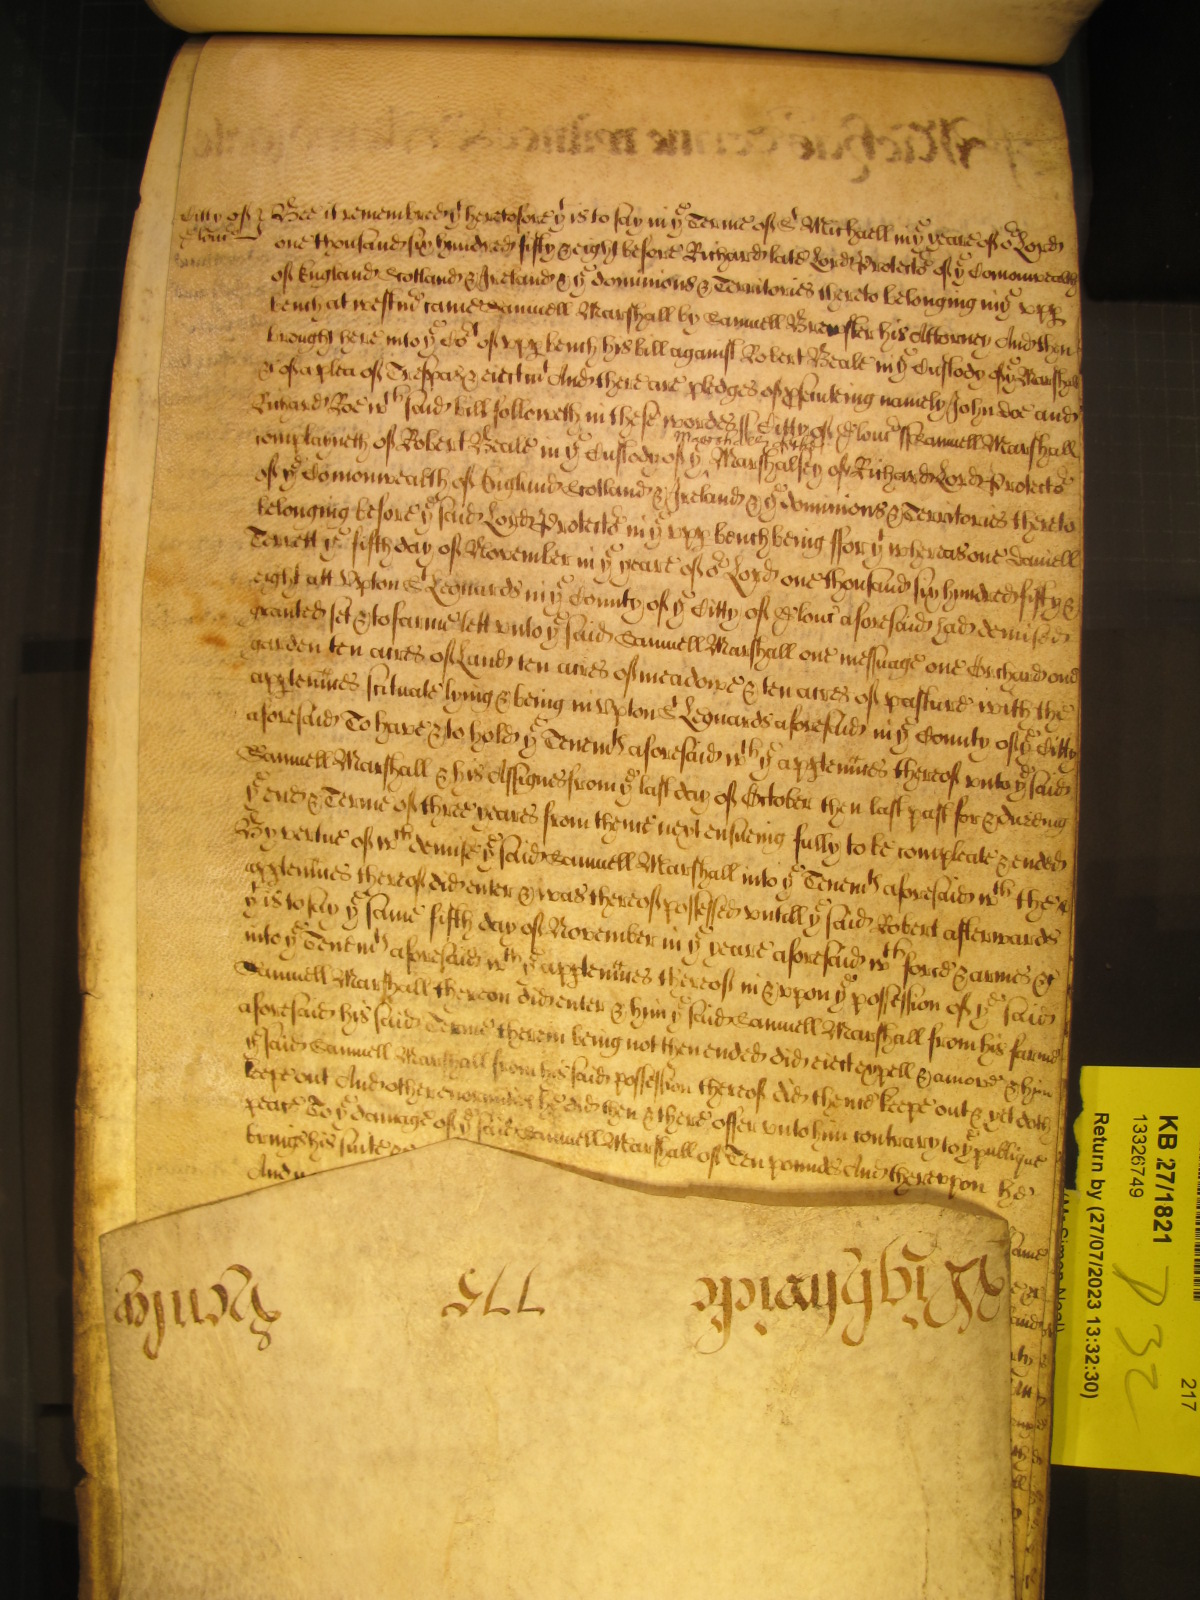 Citty of
Glouc
Bee it remembred yt heretofore yt is to say in ye Terme of St Michaell in ye yeare of or Lord
one thousand six hundred fifty & eight before Richard late Lord Protector of ye Comonwealth
of England Scotland & Ireland & ye dominions & Territories thereto belonging in ye vpp
bench at westmr came Samuell Marshall by Samuell Brewster his Attorney And then
brought here into ye Cot of vpp bench his bill against Robert Beale in ye Custody of ye Marshall
& of a plea of Trespas & eiectmt And there are pledges of psenteing namely John doe and
Richard Roe wch said bill followeth in these wordes ss Citty of Glouc ss Samuell Marshall
complayneth of Robert Beale in ye Custody of ye Marshall of the Marshalsey of Richard Lord Protector
of ye Comonwealth of England Scotland & Ireland & ye dominions & Territories thereto
belonging before ye said Lord Protector in ye vpp bench being ffor yt whereas one Samuell
Terrett ye fifth day of November in ye yeare of or Lord one thousand six hundred fifty &
eight att Vpton St Leonards in ye County of ye Citty of Glouc aforesaid had demised
granted set & to farme lett vnto ye said Samuell Marshall one messuage one Orchard one
garden ten acres of Land ten acres of meadowe & ten acres of pasture with the
apptennces scituate lying & being in Vpton St Leonards aforesaid in ye County of ye Citty
aforesaid To have & to hold ye Tenemts aforesaid wth ye apptennces thereof vnto ye said
Samuell Marshall & his Assignes from ye last day of October then last past for & dureing
ye end & Terme of three yeares from thence next ensueing fully to be compleate & ended
By vertue of wch demise ye said Samuell Marshall into ye Tenemts aforesaid wth the
apptennces thereof did enter & was thereof possessed vntill ye said Robert afterwards
yt is to say ye same fifth day of November in ye yeare aforesaid wth force & armes &c
into ye Tenemts aforesaid wth ye apptennces thereof in & vpon ye possession of ye said
Samuell Marshall thereon did enter & him ye said Samuell Marshall from his farme
aforesaid his said Terme therein being not then ended did eiect expell & amove & him
ye said Samuell Marshall from his said possession thereof did thence keepe out & yet doth
keepe out And other enormities he did then & there offer vnto him contrary to ye publique
peace To ye damage of ye said Samuell Marshall of Ten pounds And therevpon he
brings his suite
And
775
KB 27/1821
13326749
Return by (27/07/2023 13:32:30)
217
P 32